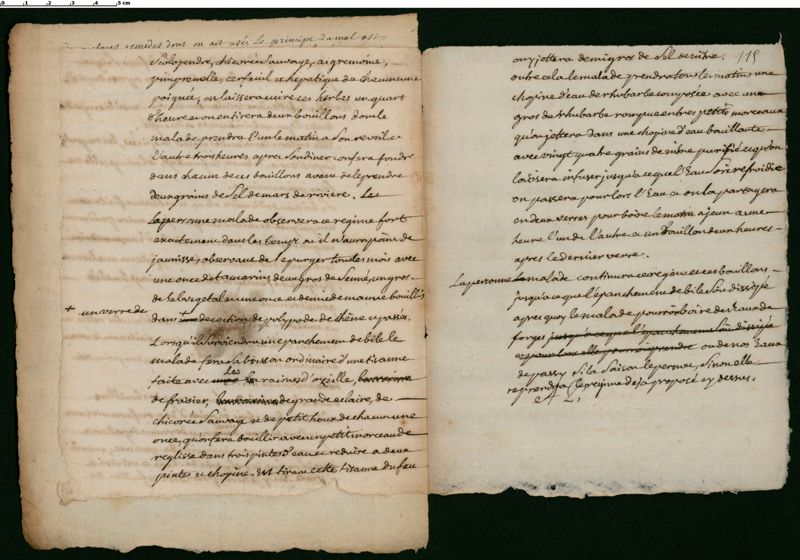 remedes dont on ait usés Le principe du mal est
Scolopendre, chicorée sauvage, aigremoine,
pimprenelle, cerfeuil et hepatique de chacune une
poignée, on laissera cuire ces herbes un quart
d'heure et on en tirera deux bouillons dont le
malade prendra l'un le matin a son reveil et
l'autre trois heures apres son diner on fera fondre
dans chacun de ces bouillons avant de le prendre
deux grains de Sel de mars de riviere. Le
la personne malade observera ce regime fort
exactement dans les temps où il n'aura point de
jaunisse, observant de se purger tous les mois avec
une once de tamarins deux gros de senné, un gros
de sel vegetal et une once et demie de manne bouillis
+ un verre de
dans decoction de polypode de chêne et passé.
Lorsqu'il surviendra un epanchement de bile le
malade fera sa boisson ordinaire d'une tisanne
faite avec Les racines d'ozeille,
de fraisier, de grande eclaire, de
chicorée sauvage et de petit houx de chacun une
once, qu'on fera bouillir avec un petit morceau de
reglisse dans trois pintes d'eau et reduire a deux
pintes et chopine. En tirant cette tisanne du feu
115
on y jettera demi gros de Sel de nitre.
outre cela le malade prendra tous les matins une
chopine d'eau de rhubarbe composée avec un
gros de rhubarbe rompue en tres petits morceaux
qu'on jettera dans une chopine d'eau bouillante
avec vingt quatre grains de nitre purifié et qu'on
laissera infuser jusqu'a ce que l'Eau soit refroidie
on passera pour lors l'Eau et on la partagera
en deux verres pour boire le matin a jeun a une
heure l'un de l'autre et un bouillon deux heures
apres le dernier verre.
La personne malade continuera ce regime et ces bouillons
jusqu'a ce que l'épanchement de bile soit dissipé
apres quoy le malade pourra boire de l'eau de
forges jusqu'a ce que l'épanchement soit dissipé
et pour lors elle pourra prendre ou de nos Eaux
de passy si la saison le permet, sinon elle
reprendra le regime deja proposé cy dessus.